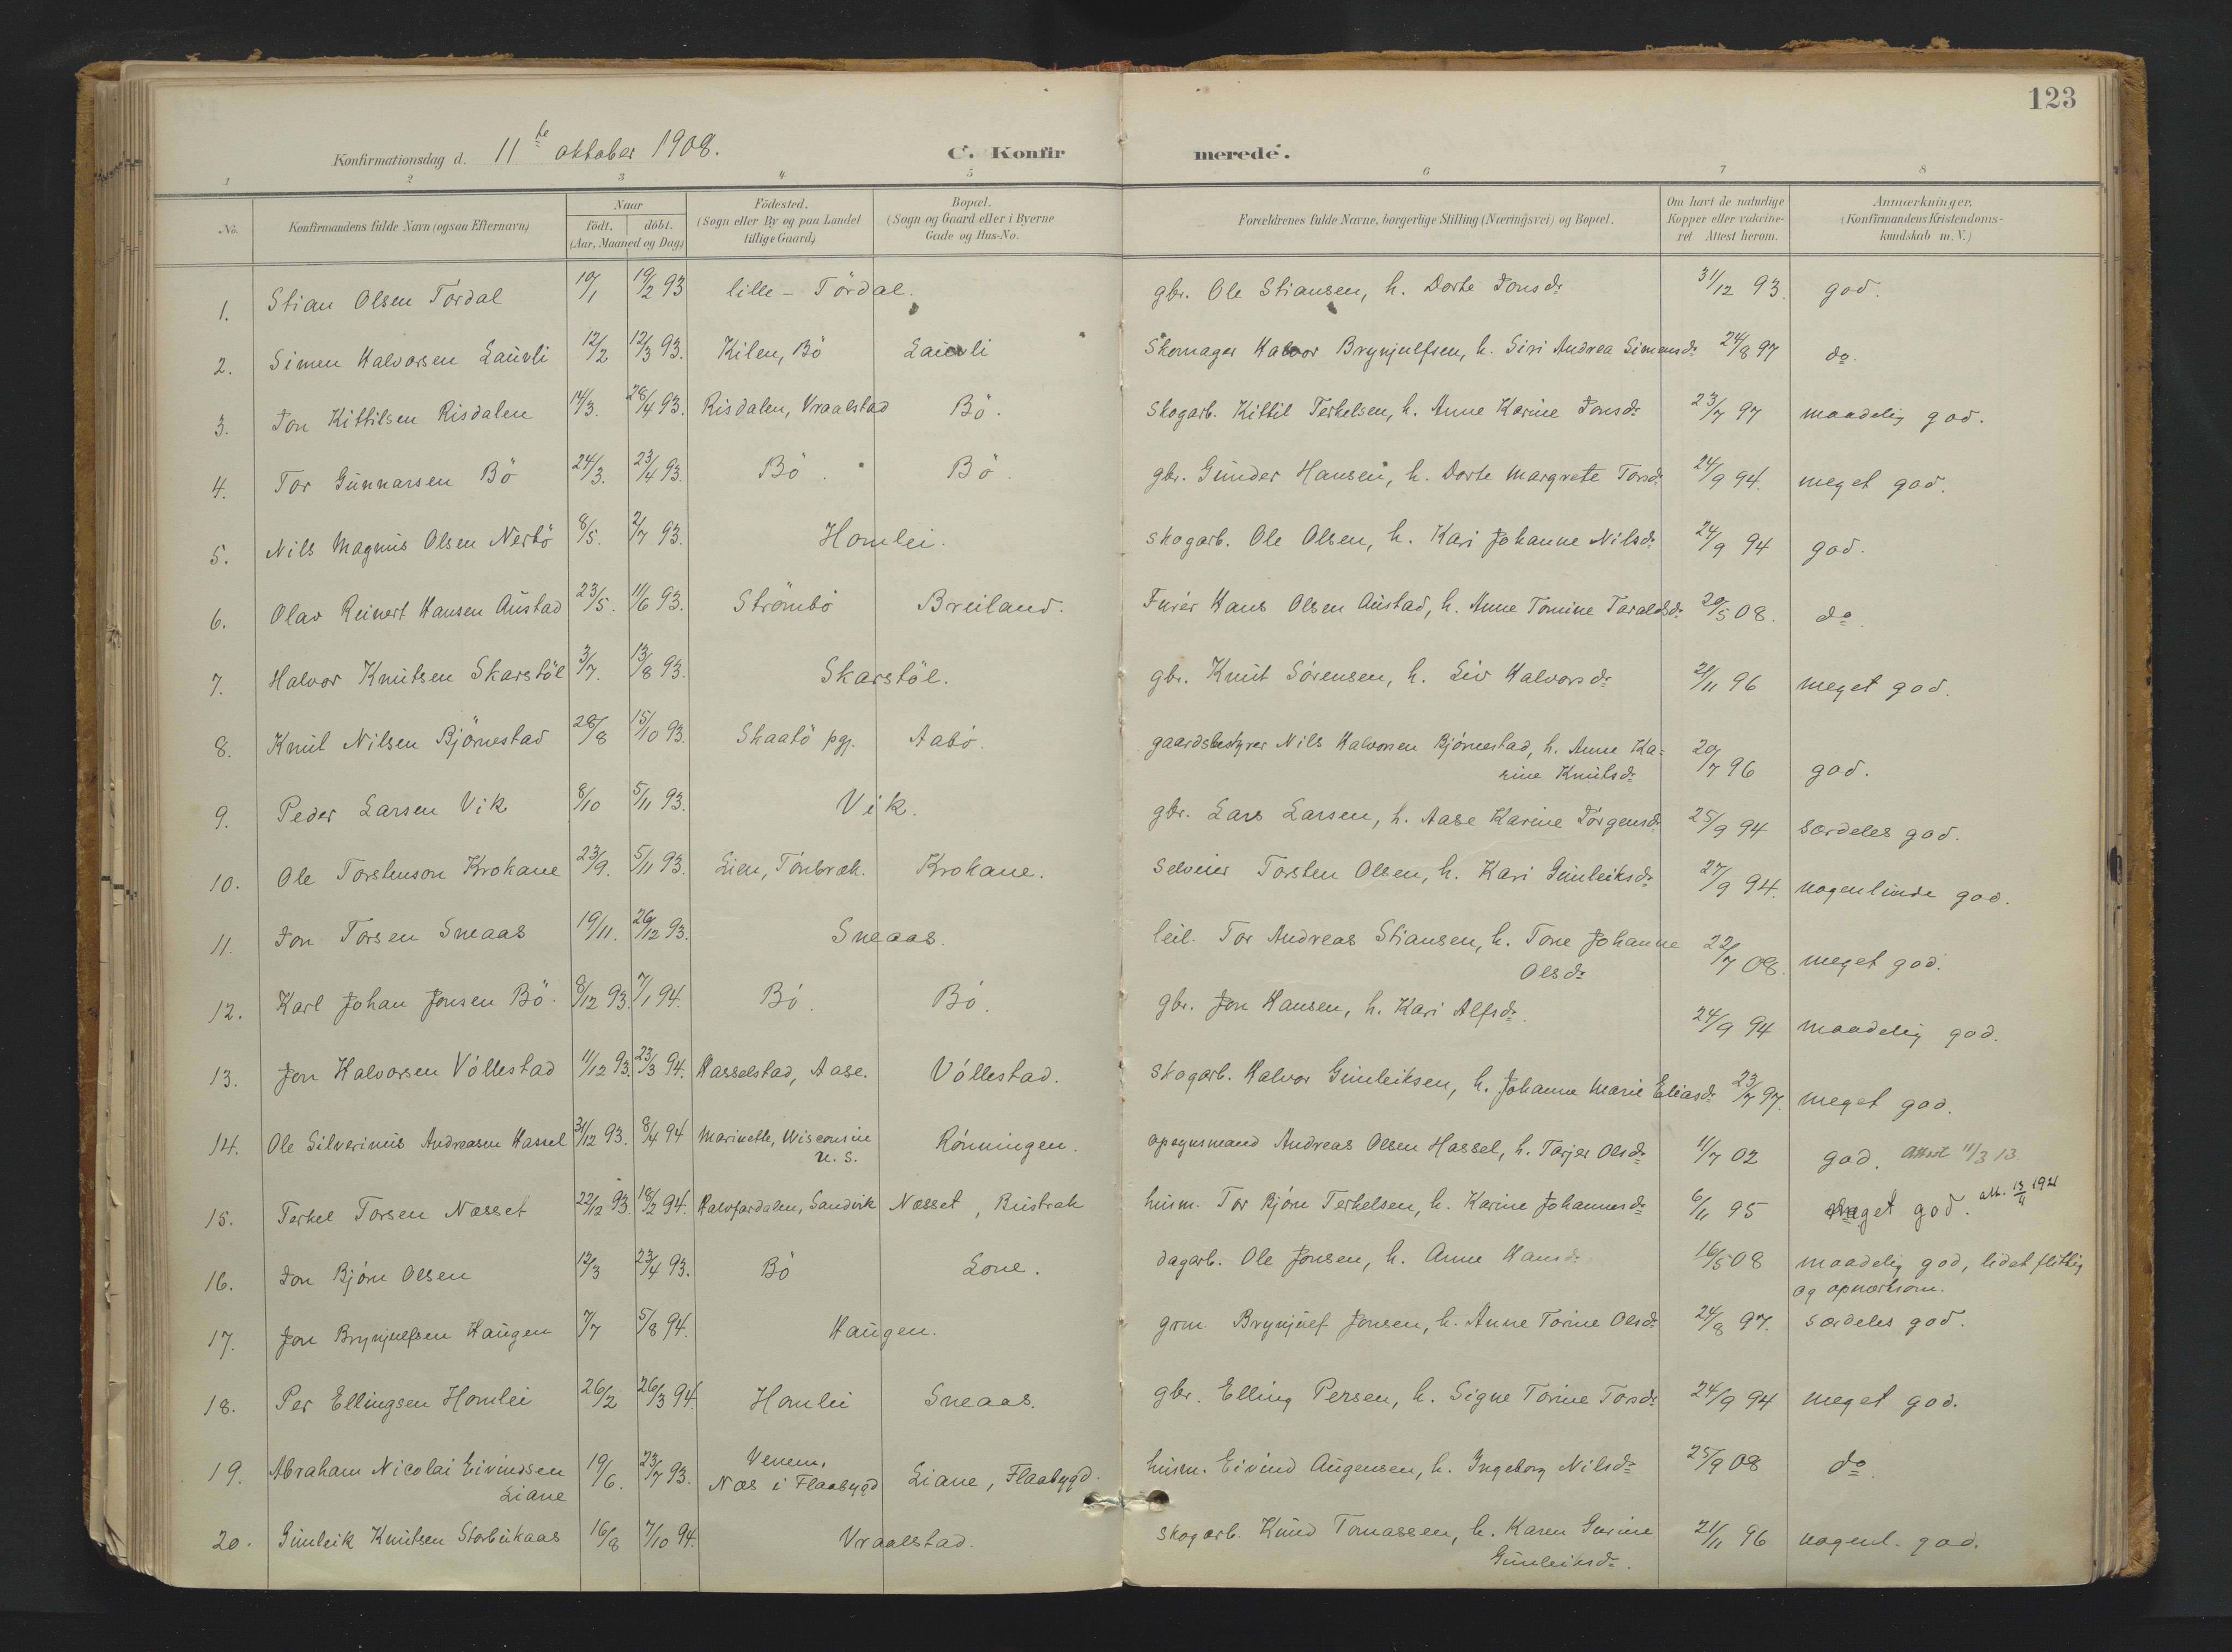 123
Konfirmationsdag d. 11te oktober 1908. C. Konfirmerede.
1 2 3 4 5 6 7 8
No. Konfirmandens fulde Navn (ogsaa Efternavn) Naar födt. döbt. (Aar, Maaned og Dag) Födested. (Sogn eller By og paa Landet tillige Gaard) Bopæl. (Sogn og Gaard eller i Byerne Gade og Hus-No. Forældrenes fulde Navne, borgerlige Stilling (Næringsvei) og Bopæl. Om havt de naturlige Kopper eller vakcineret Attest herom. Anmærkninger. (Konfirmandens Kristendomskundskab m. V.)
1. Stian Olsen Tordal 10/1 19/2 93 lille - Tördal. gbr. Ole Stiansen, h. Dorte Jonsdr 31/12 93. god.
2. Simen Halvorsen Laúvli 12/2 12/3 93. Kilen, Bö Lauvli Skomager Halvor Brynjulfsen, h. Siri Andrea Simensdr 24/8 97 do.
3. Jon Kittilsen Risdalen 14/3. 28/4 93. Risdalen, Vraalstad Bö. Skogarb. Kittil Terkelsen, h. Anne Karine Jonsdr 23/7 97 maadelig god.
4. Tor Gúnnarsen Bö 24/3. 23/4 93. Bö. Bö. gbr. Gúnder Hansen, h. Dorte Margrete Torsdr 24/9 94. meget god.
5. Nils Magnús Olsen Nerbö 8/5. 2/7 93. Homlei. skogarb. Ole Olsen, h. Kari Johanne Nilsdr 24/9 94 god.
6. Olav Reinert Hansen Aústad 23/5. 11/6 93. Strömbö Breiland. Furér Hans Olsen Aústad, h. Anne Tomine Taraldsdr 29/5 08. do
7. Halvor Knútsen Skarstöl 3/7. 13/8 93. Skarstöl. gbr. Knút Sörensen, h. Liv Halvorsdr 21/11 96 meget god.
8. Knút Nilsen Björnestad 28/8 15/10 93. Skaatö pgj. Aabö. gaardsbestyrer Nils Halvorsen Björnestad, h. Anne Ka=
rine Knútsdr 20/7 96 god.
9. Peder Larsen Vik 8/10 5/11 93. Vik. gbr. Lars Larsen, h. Aase Karine Jörgensdr 25/9 94 særdeles god.
10. Ole Torstenson Krokane 23/9. 5/11 93. Lien, Tönbræk. Krokane. Selveier Torsten Olsen, h. Kari Gúnleiksdr 27/9 94. nogenlúnde god.
11. Jon Torsen Sneaas 19/11. 26/12 93. Sneaas. leil. Tor Andreas Stiansen, h. Tone Johanne
Olsdr 22/7 08. meget god.
12. Karl Johan Jonsen Bö. 8/12 93. 7/1 94. Bö. Bö. gbr. Jon Hansen, h. Kari Alfsdr. 24/9 94 maadelig god.
13. Jon Halvorsen Völlestad 11/12 93. 23/3 94. Hasselstad, Aase. Völlestad. Skogarb. Halvor Gúnleiksen, h. Johanne Marie Eliasdr 23/7 97. meget god.
14. Ole Silverinús Andreasen Hassel 31/12 93. 8/4 94 Marinette, Wisconsin
U. S. Rönningen. opsynsmand Andreas Olsen Hassel, h. Tarjer Olsdr 11/7 02 god. Attest 11/3 13.
15. Terkel Torsen Næsset 22/12 93. 18/2 94. Halvfardalen, Sandvik Næsset, Bústrak húsm. Tor Björn Terkelsen, h. Karine Johannesdr 6/11 95 meget god. att. 13/11 1921
16. Jon Björn Olsen 12/3 23/4 93. Bö Lone. dagarb. Ole Jonsen, h. Anne Hansdr 16/5 08 maadelig god, lidet flittig
og opmærksom.
17. Jon Brynjulfsen Haúgen 7/7 5/8 94. Haúgen. grm. Brynjúlf Jonsen, h. Anne Torine Olsdr 24/8 97. særdeles god.
18. Per Ellingsen Homlei 26/2 26/3 94. Homlei Sneaas. gbr. Elling Persen, h. Signe Torine Torsdr 24/9 94 meget god.
19. Abraham Nicolai Eivindsen
Liane 19/6. 23/7 93. Venem,
Næs i Flaabygd Liane, Flaabygd. húsm. Eivind Aúgensen, h. Ingeborg Nilsdr 25/9 08 do.
20. Gúnleik Knútsen Storbúkaas 16/8 7/10 94. Vraalstad. Skogarb. Knúd Tomassen, h. Karen Gurine
Gúnleiksdr. 21/11 96 nogenl. god.